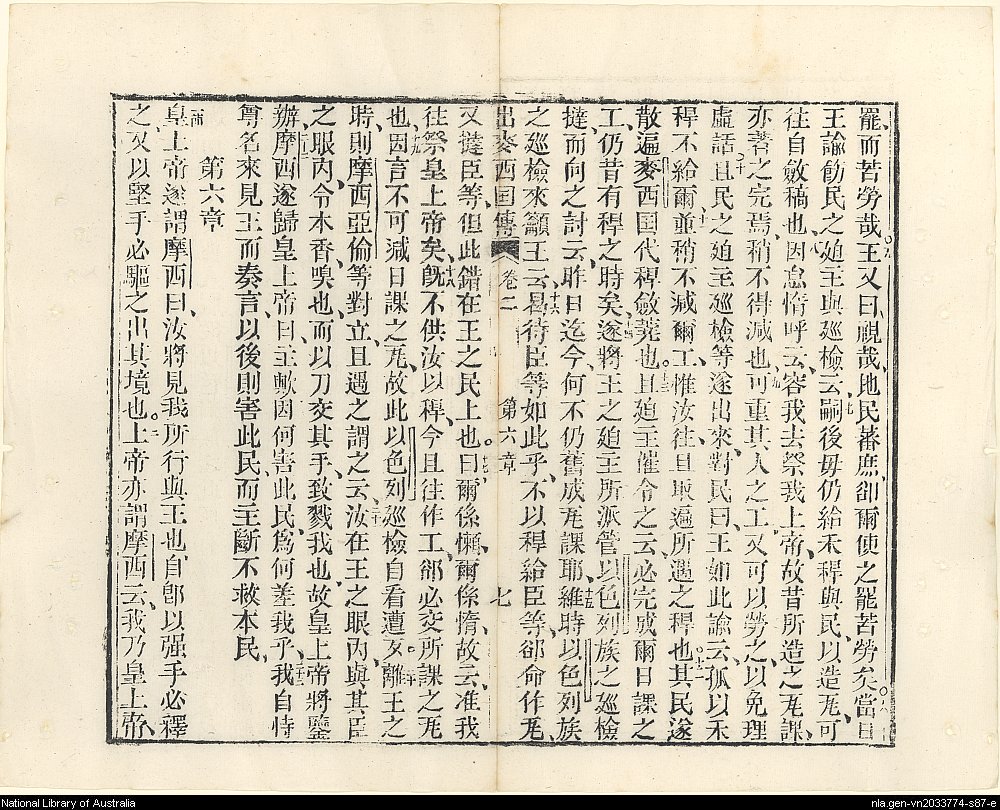 罷而苦勞哉王又曰覩哉地民蕃庶卻爾使之罷苦勞矣當日
王諭飭民之廹主與廵檢云嗣後毋仍給禾稈與民以造𤬦可
往自斂稿也因怠惰呼云容我去祭我上帝故昔所造之𤬦課
亦著之完焉稍不得減也可重其人之工又可以勞之以免理
虛話且民之廹主廵檢等遂出來對民曰王如此諭云孤以禾
稈不給爾重稍不減爾工惟汝往且取遍所遇之稈也其民遂
散遍麥西国代稈斂蕘也且廹主催令之云必完成爾日課之
工仍昔有稈之時矣遂將王之廹主所派管以色列族之廵檢
撻而向之討云昨日迄今何不仍舊成𤬦課耶維時以色列族
之廵檢來籲王云曷待臣等如此乎不以稈給臣等卻命作𤬦
出麥西国傳 卷二 第六章 七
又撻臣等但此錯在王之民上也曰爾係懶爾係惰故云准我
往祭皇上帝矣旣不供汝以稈今且往作工卻必交所課之𤬦
也因言不可減日課之𤬦故此以色列廵檢自看遭歹離王之
時則摩西亞倫等對立且遇之謂之云汝在王之眼內與其臣
之眼內令本香嗅也而以刀交其手致戮我也故皇上帝將鑒
辦摩西遂歸皇上帝曰主歟因何害此民爲何差我乎我自恃
尊名來見王而奏言以後則害此民而主斷不救本民
第六章
皇上帝遂謂摩西曰汝將見我所行與王也自卽以强手必釋
之又以堅手必驅之出其境也上帝亦謂摩西云我乃皇上帝
National Library of Australia
nla.gen-vn2033774-s87-e